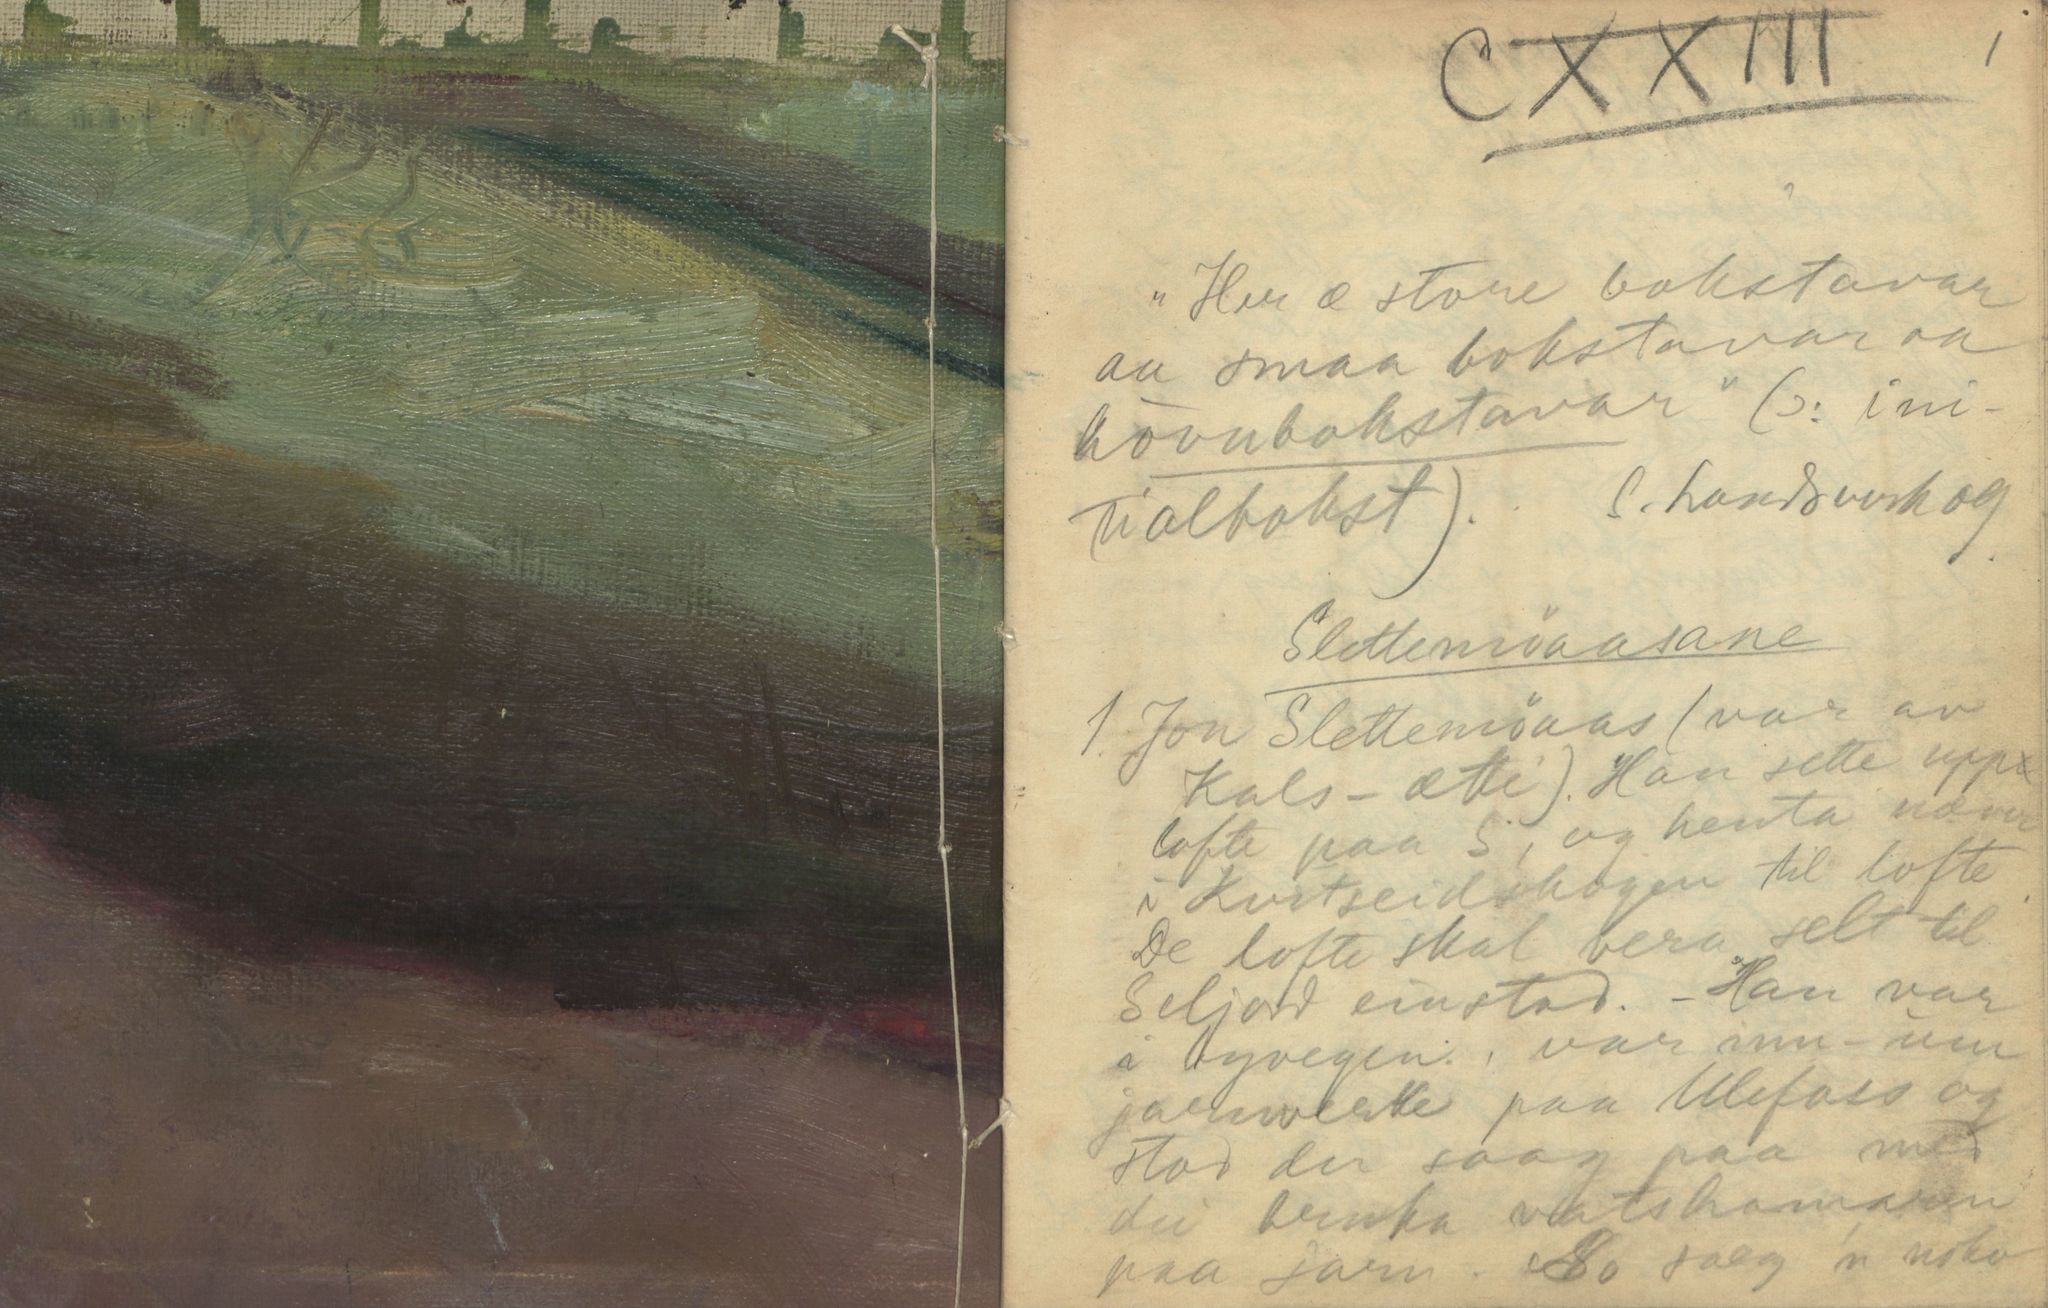 CXXIII
1
"Her æ store bokstavar
aa smaa bokstavar aa
hövubokstavar" (ɔ: ini-
tialbokst). S. Landsverk og
Slettemöaasane
1. Jon Slettemöaas (var av
Kals-ætti). Han sette upp
lofte paa S, og henta næver
i Kvitseidskogen til lofte.
De lofte skal vera selt til
Seljord einstad. - Han var
i byvegen, var inn-um
jarnverke paa Ulefoss og
stod der saag paa med
dei bruka vatshamaren
paa jarn. So saag 'n noko